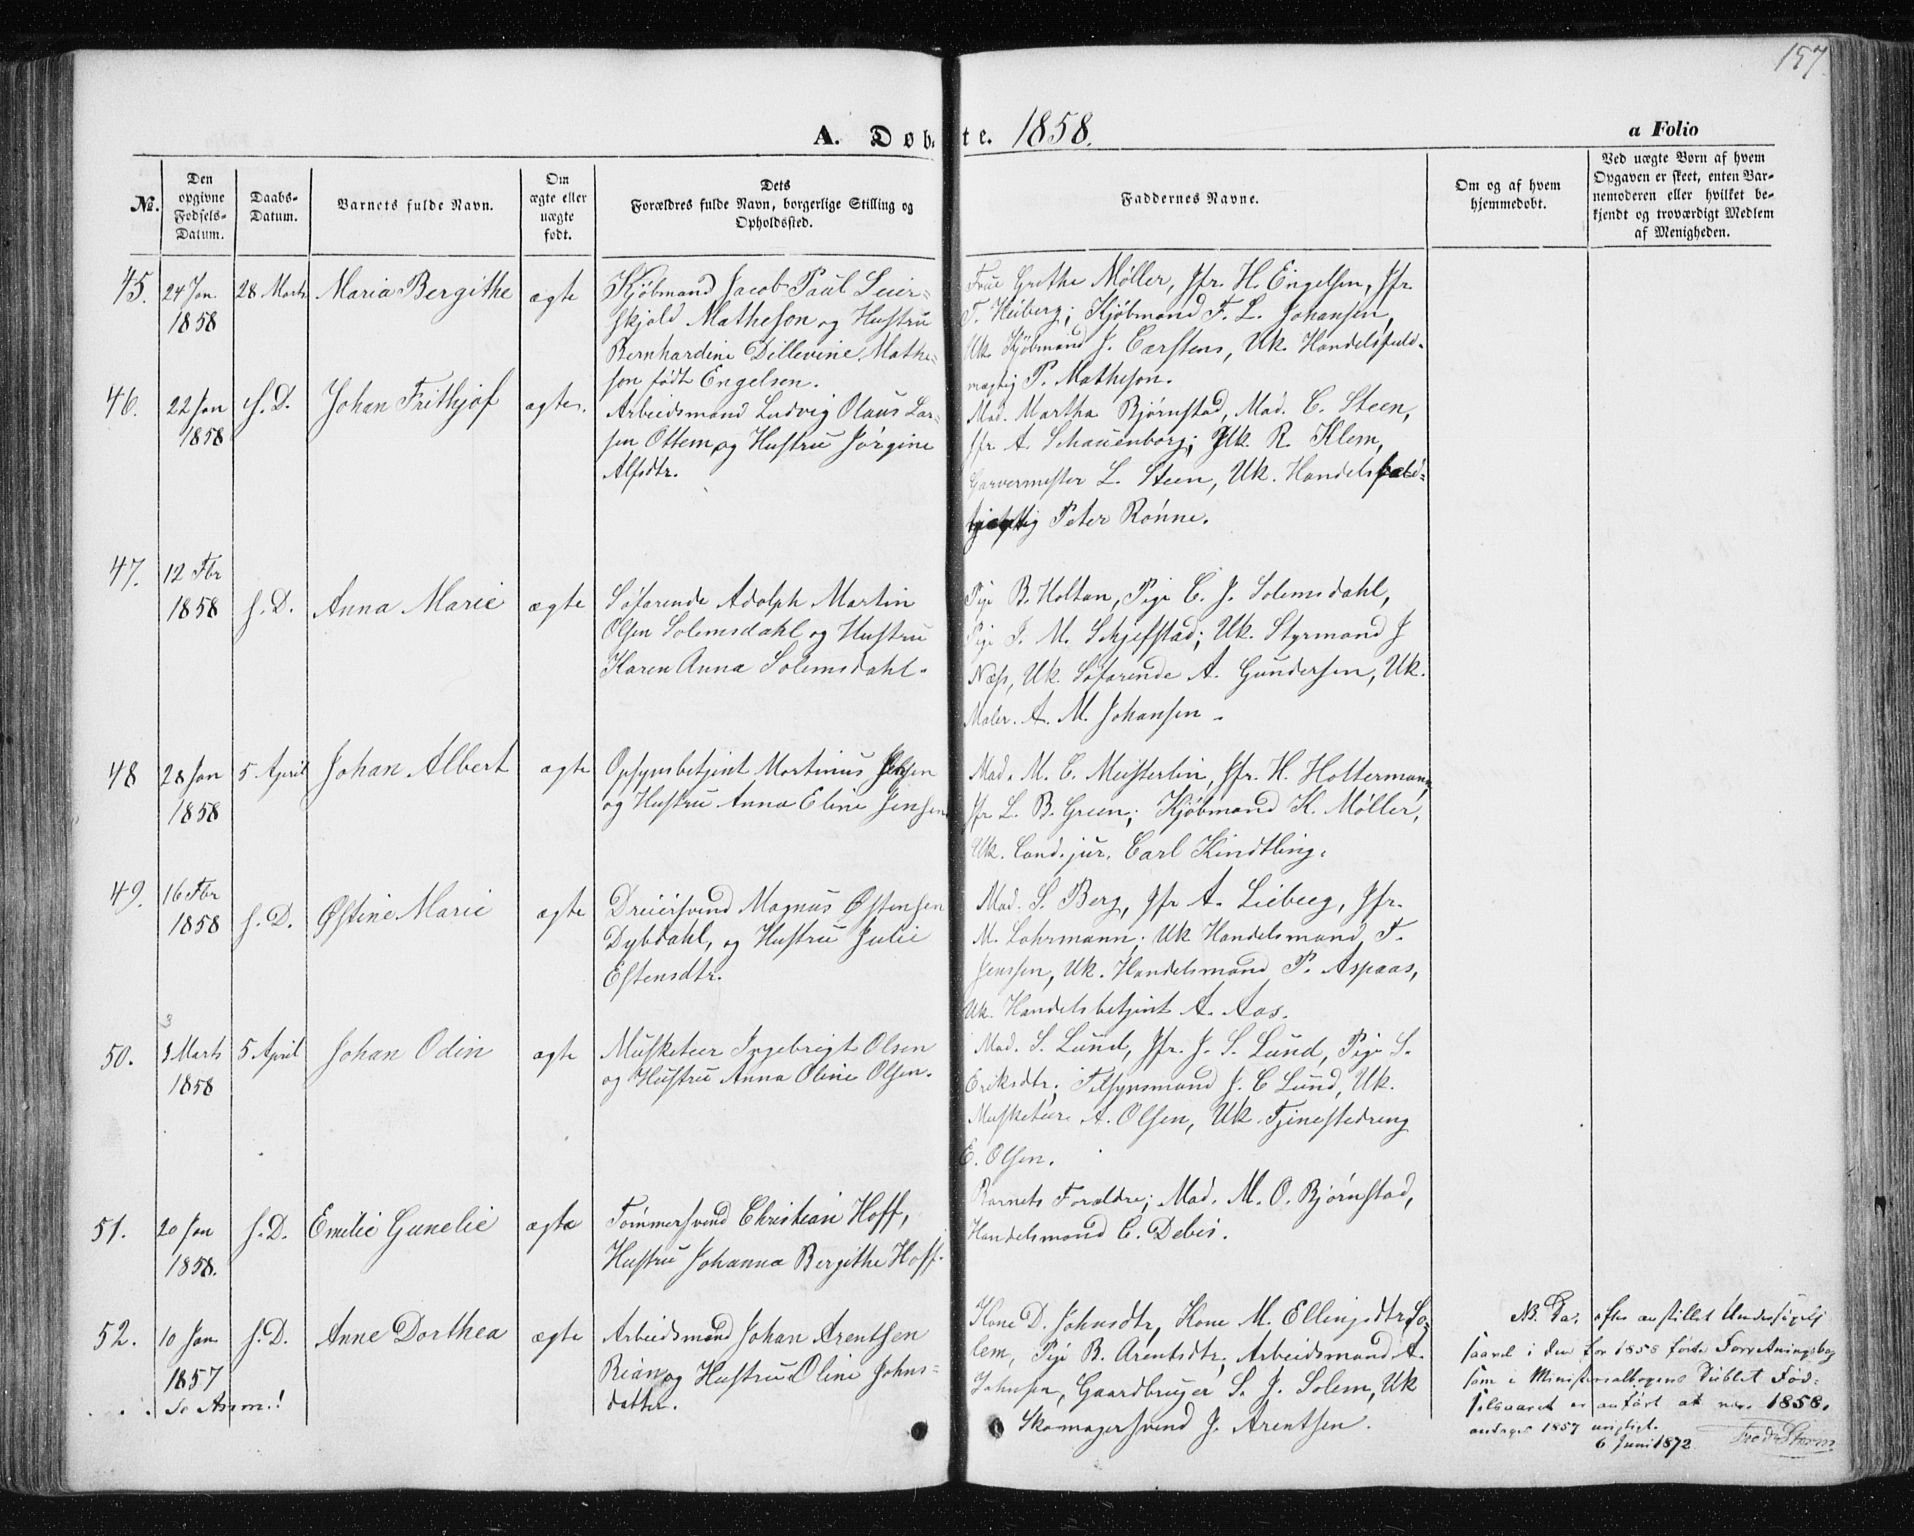 157.
A. Døbte. 1858.
a Folio
№.
Den
opgivne
Fødsels-
Datum.
Daabs-
Datum.
Barnets fulde Navn.
Om
ægte eller
uægte
født.
Dets
Forældres fulde Navn, borgerlige Stilling og
Opholdssted.
Faddernes Navne.
Om og af hvem
hjemmedøbt.
Ved uægte Børn af hvem
Opgaven er skeet, enten Bar-
nemoderen eller hvilket be-
kjendt og troværdigt Medlem
af Menigheden.
45.
24 Jan
1858
28 Marts
Maria Bergithe
ægte
Kjøbmand Jacob Paul Leier-
skjold Matheson og Hustru
Bernhardine Dillevine Mathe-
son født Engelsen.
Frue Grethe Møller, Jfr. H. Engelsen, Jfr.
T. Heiberg; Kjøbmand F. L. Johansen,
Uk. Kjøbmand J. Carstens, Uk. Handelsfuld-
mægtig P. Matheson.
46.
22 Jan
1858
s. D.
Johan Frithjof
ægte.
Arbeidsmand Ludvig Olaus Lar-
sen Ottem og Hustru Jørgine
Alfsdtr.
Mad. Martha Bjørnstad, Mad. C. Steen,
Jfr. A. Schauenborg; Uk. R. Klem,
Garvermester L. Steen, Uk. Handels
Peter Rønne.
47.
12 Fbr
1858
s. D.
Anna Marie
ægte
Søfarende Adolph Martin
Olsen Solemsdahl og Hustru
Karen Anna Solemsdahl.
Pige B. Holtan, Pige C. J. Solemsdahl,
Pige J. M. Schjefstad; Uk. Styrmand J
Næss, Uk Søfarende A. Gundersen, Uk.
Maler A. M. Johansen.
48
28 Jan
1858
5 April
Johan Albert
ægte
Opsynsbetjent Martinus Jensen
og Hustru Anna Eline Jensen
Mad. M. C. Meisterlin, Jfr. H. Holtermann,
Jfr L. B. Green; Kjøbmand K. Møller,
Uk. Cand. jur. Carl Kindtling.
49.
16 Fbr
1858
s. D.
Østine Marie
ægte
Dreiersvend Magnus Østensen
Dybdahl, og Hustru Julie
Estensdtr.
Mad. S. Berg, Jfr A. Lieberg, Jfr.
M. Lohrmann; Uk Handelsmand T.
Jenssen, Uk. Handelsmand P. Aspaas,
Uk. Handelsbetjent A. Aas.
50.
3
8 Marts
1858
5 April
Johan Odin
ægte
Musketeer Ingebrigt Olsen
og Hustru Anna Oline Olsen.
Mad. S. Lund, Jfr. J. S. Lund, Pige S.
Eriksdtr; Tilsynsmand J. C Lund, Uk.
Musketeer A. Olsen, Uk. Tjenestedreng
E. Olsen.
51.
20 Jan
1858.
s. D.
Emelie Gunelie
ægte
Tømmersvend Christian Hoff,
Hustru Johanna Bergithe Hoff.
Barnets Forældre; Mad. M. O. Bjørnstad,
Handelsmand C. Debes.
52.
10 Jan
1857
Se Anm.!
s. D.
Anne Dorthea
ægte
Arbeidsmand Johan Arentsen
Rian og Hustru Oline Johns-
datter.
Kone D. Johnsdtr, Kone M. Ellingsdtr So-
lem, Pige B. Arentsdtr; Arbeidsmand A.
Johnsen, Gaardbruger S. J. Solem, Uk
Skomagersvend J. Arentsen.
NB. Da, efter anstillet Undersøgelse
saavel i den for 1858 førte Forretningsbog
som i Ministerialbogens Dublet Fød-
selsaaret er anført at være 1858,
antages 1857 urigtigt.
6 Juni 1872.